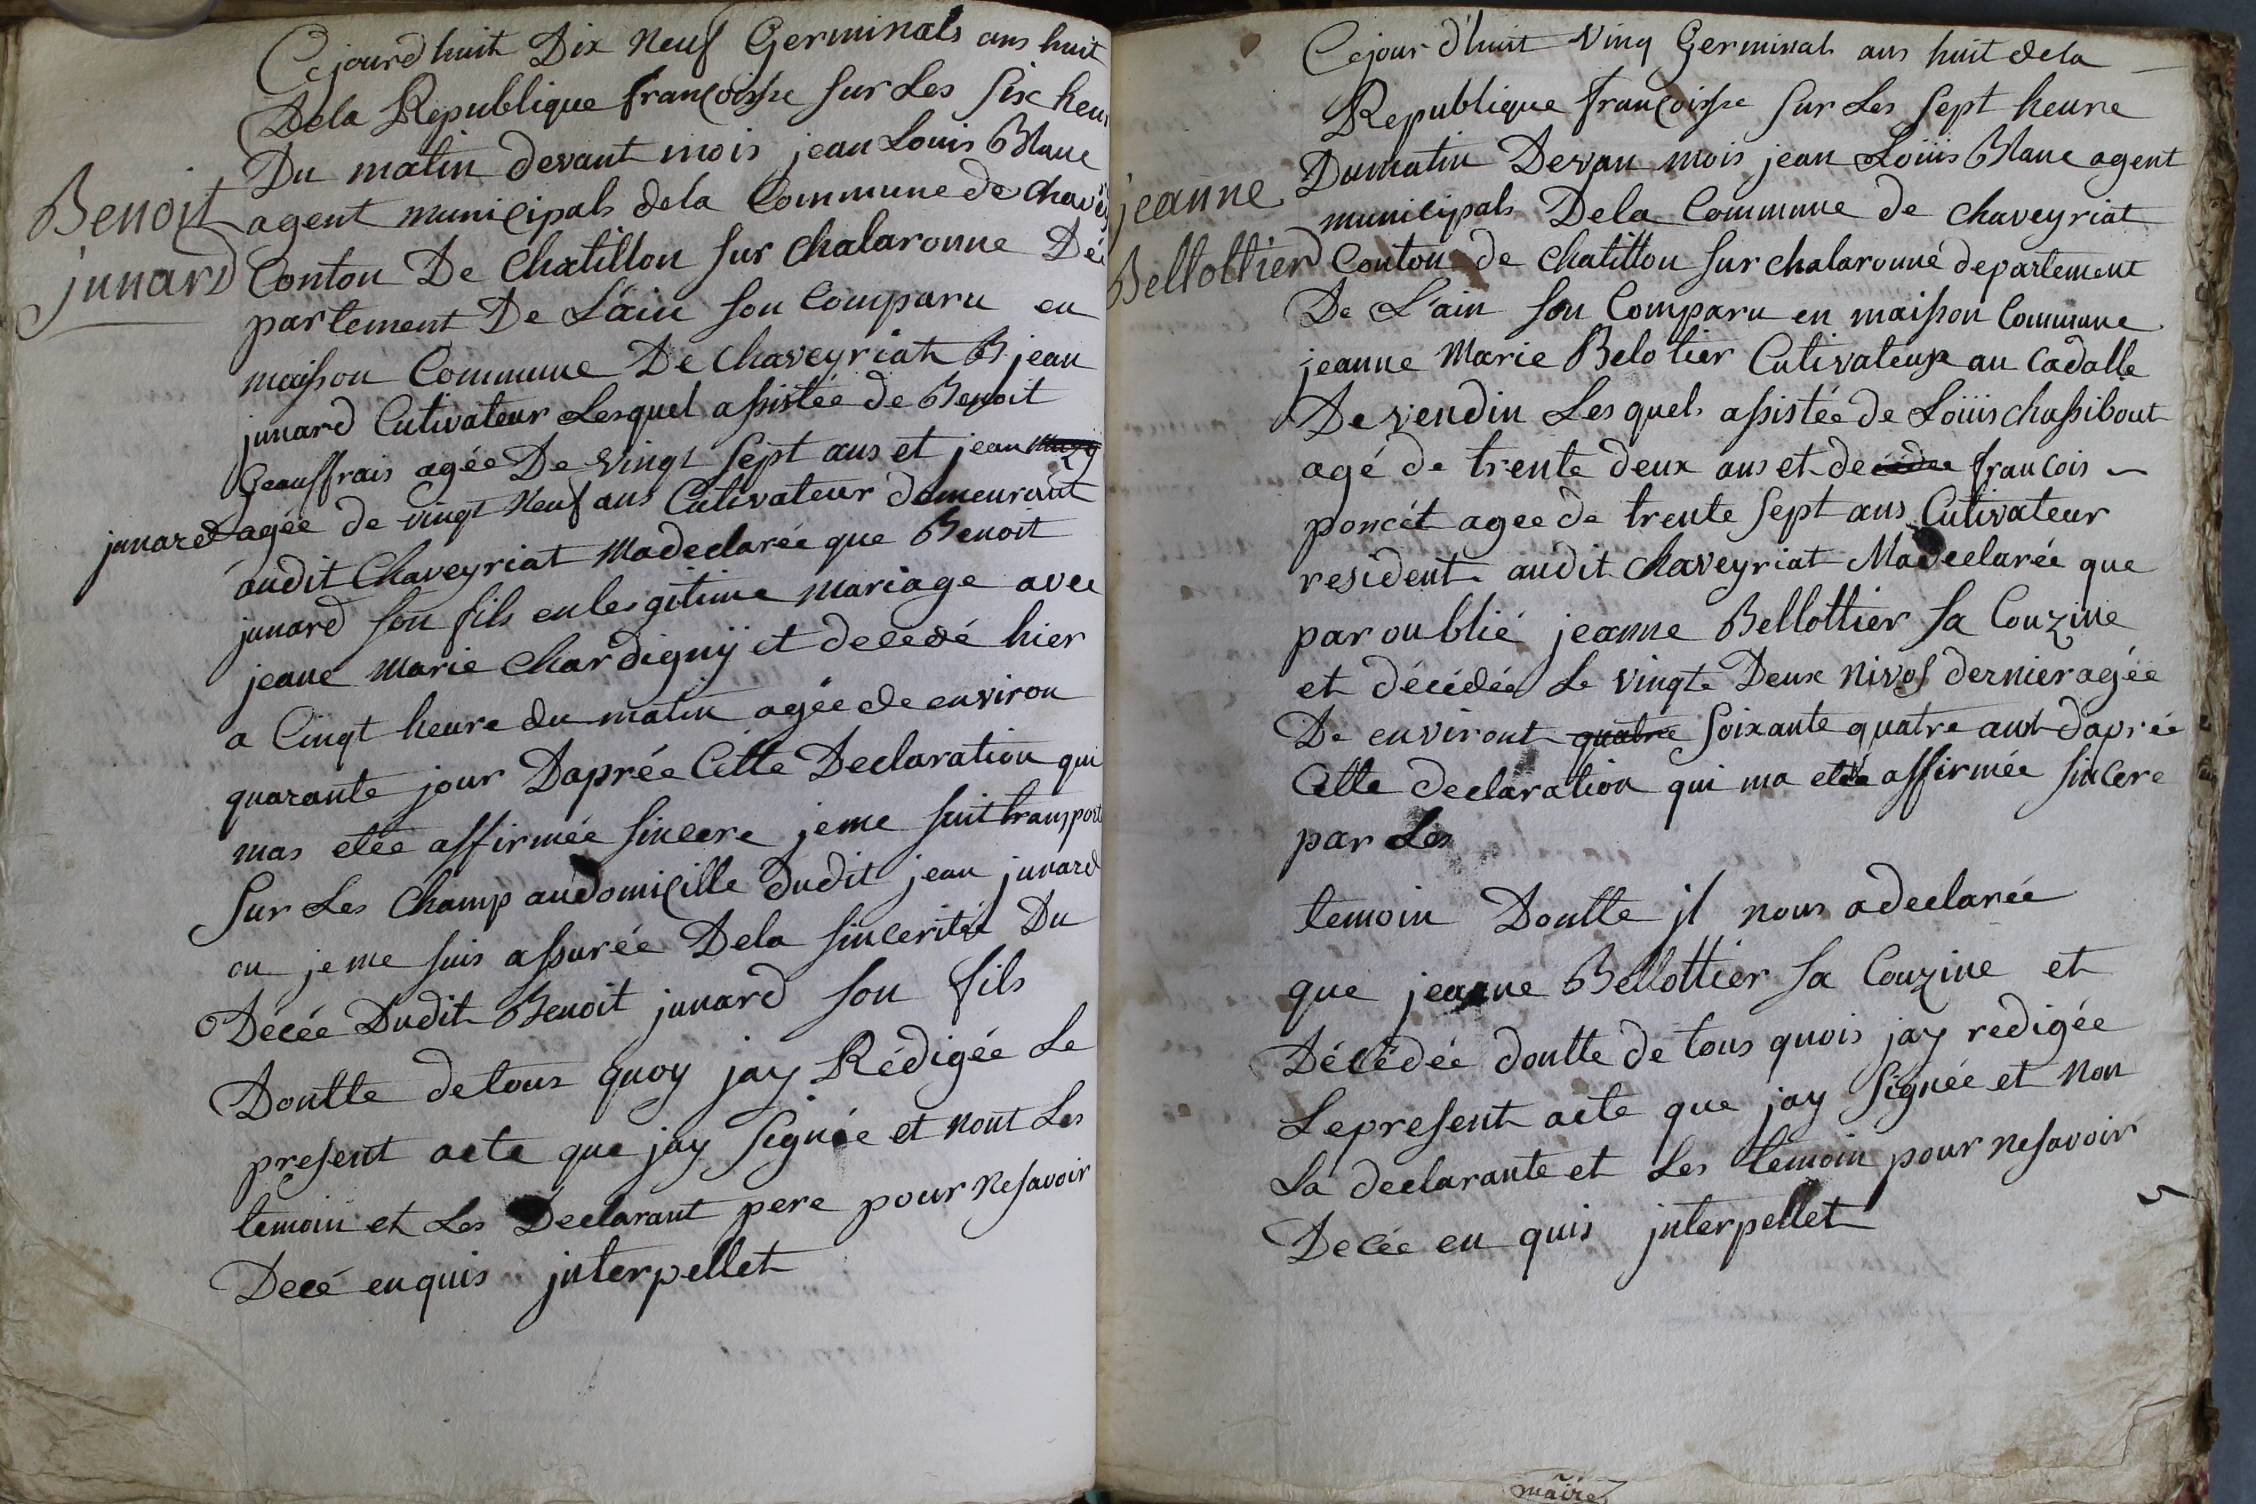 Benoit
junard
Cejourdhuit Dix Neuf Germinals ans huit
Dela Republique françoisse sur Les six heur
Du matin devant mois jean Louis Blanc
agent municipals dela Commune de chavey
Conton De Chatillon sur chalaronne Dé
partement De L'ain son Comparu en
maisson Commune De chaveyriat B jean
junard Cutivateur Lesquel assistée de Benoit
Geauffrais agée De vingt sept ans et jean
junard agée de vingt neuf ans Cutivateur demeurant
audit Chaveyriat Madeclarée que Benoit
junard son fils enlesgitime mariage avec
jeane Marie Chardignÿ et decedé hier
a Cinqt heure du matin agée de environ
quarante jour Daprée Cette Declaration qui
mas etée affirmée sincere jeme suit transport
sur Les Champ audomicille dudit jean junard
ou jeme suis assurée Dela sincerités Du
Décée Dudit Benoit junard son fils
Dontte detous quoy jay Rédigée Le
present acte que jay signée et nont Les
temoin et Les Declarant pere pour nesavoir
Decé enquis interpellet
jeanne
Bellottier
Cejour d'huit vinq Germinals ans huit dela
Republique françoisse sur Les sept heure
Dumatin Devan mois jean Loüis Blanc agent
municipals Dela Commune de chaveyriat
Conton de chatillon sur chalaronne departement
De L'ain son Comparu en maisson Commune
jeanne Marie Belotier Cutivateuse au Cadalle
De vendin Lesquels assistée de Loüis chassibout
agé de trente deux ans et de françois
poncét agee de trente sept ans Cutivateur
resident audit chaveyriat Madeclarée que
par oublié jeanne Bellottier sa Couzine
et décédée Le vingte Deux nivos dernier agée
De environt quatre soixante quatre ant daprée
Cette declaration qui ma etée affirmée sincere
par Les
temoin Dontte il nous adeclarée
que jeanne Bellottier sa Couzine et
Décédée dontte de tous quois jay redigée
Lepresent acte que jay signée et non
La declarante et Les temoin pour nesavoir
Decée en quis interpellet
maire